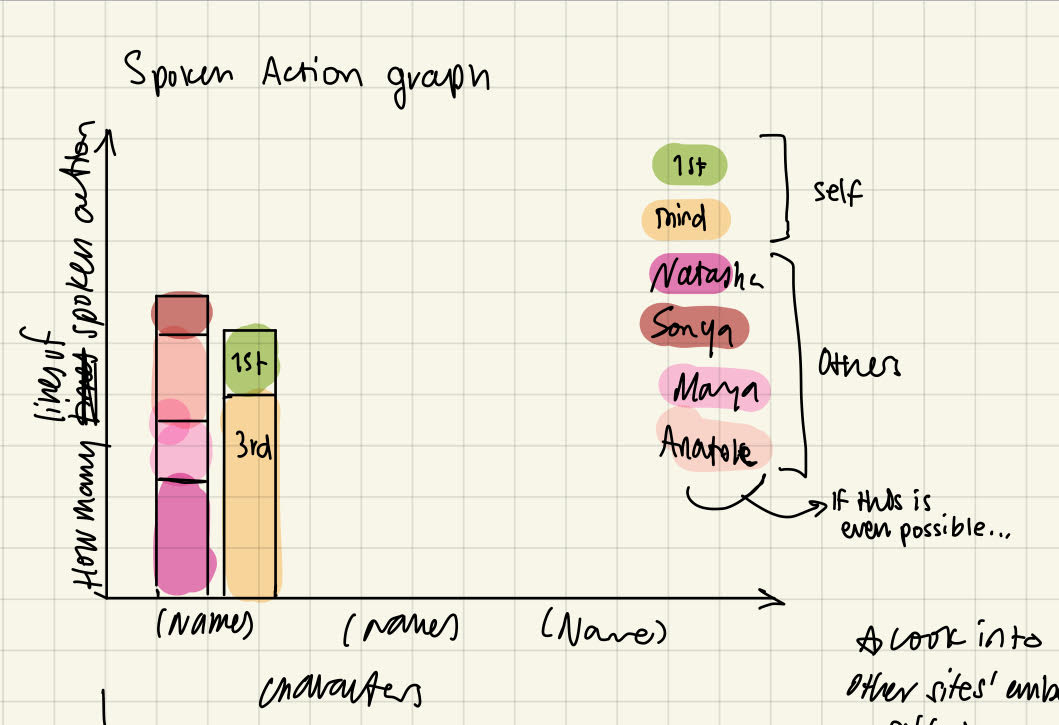 Spoken Action graph
How many lines of spoken action
1st
3rd
(Names)
(names)
(Name)
characters
1st
mird
self
Natasha
Sonya
Marya
Anatole
Others
If this is
even possible...
Look into
Other sites' emb